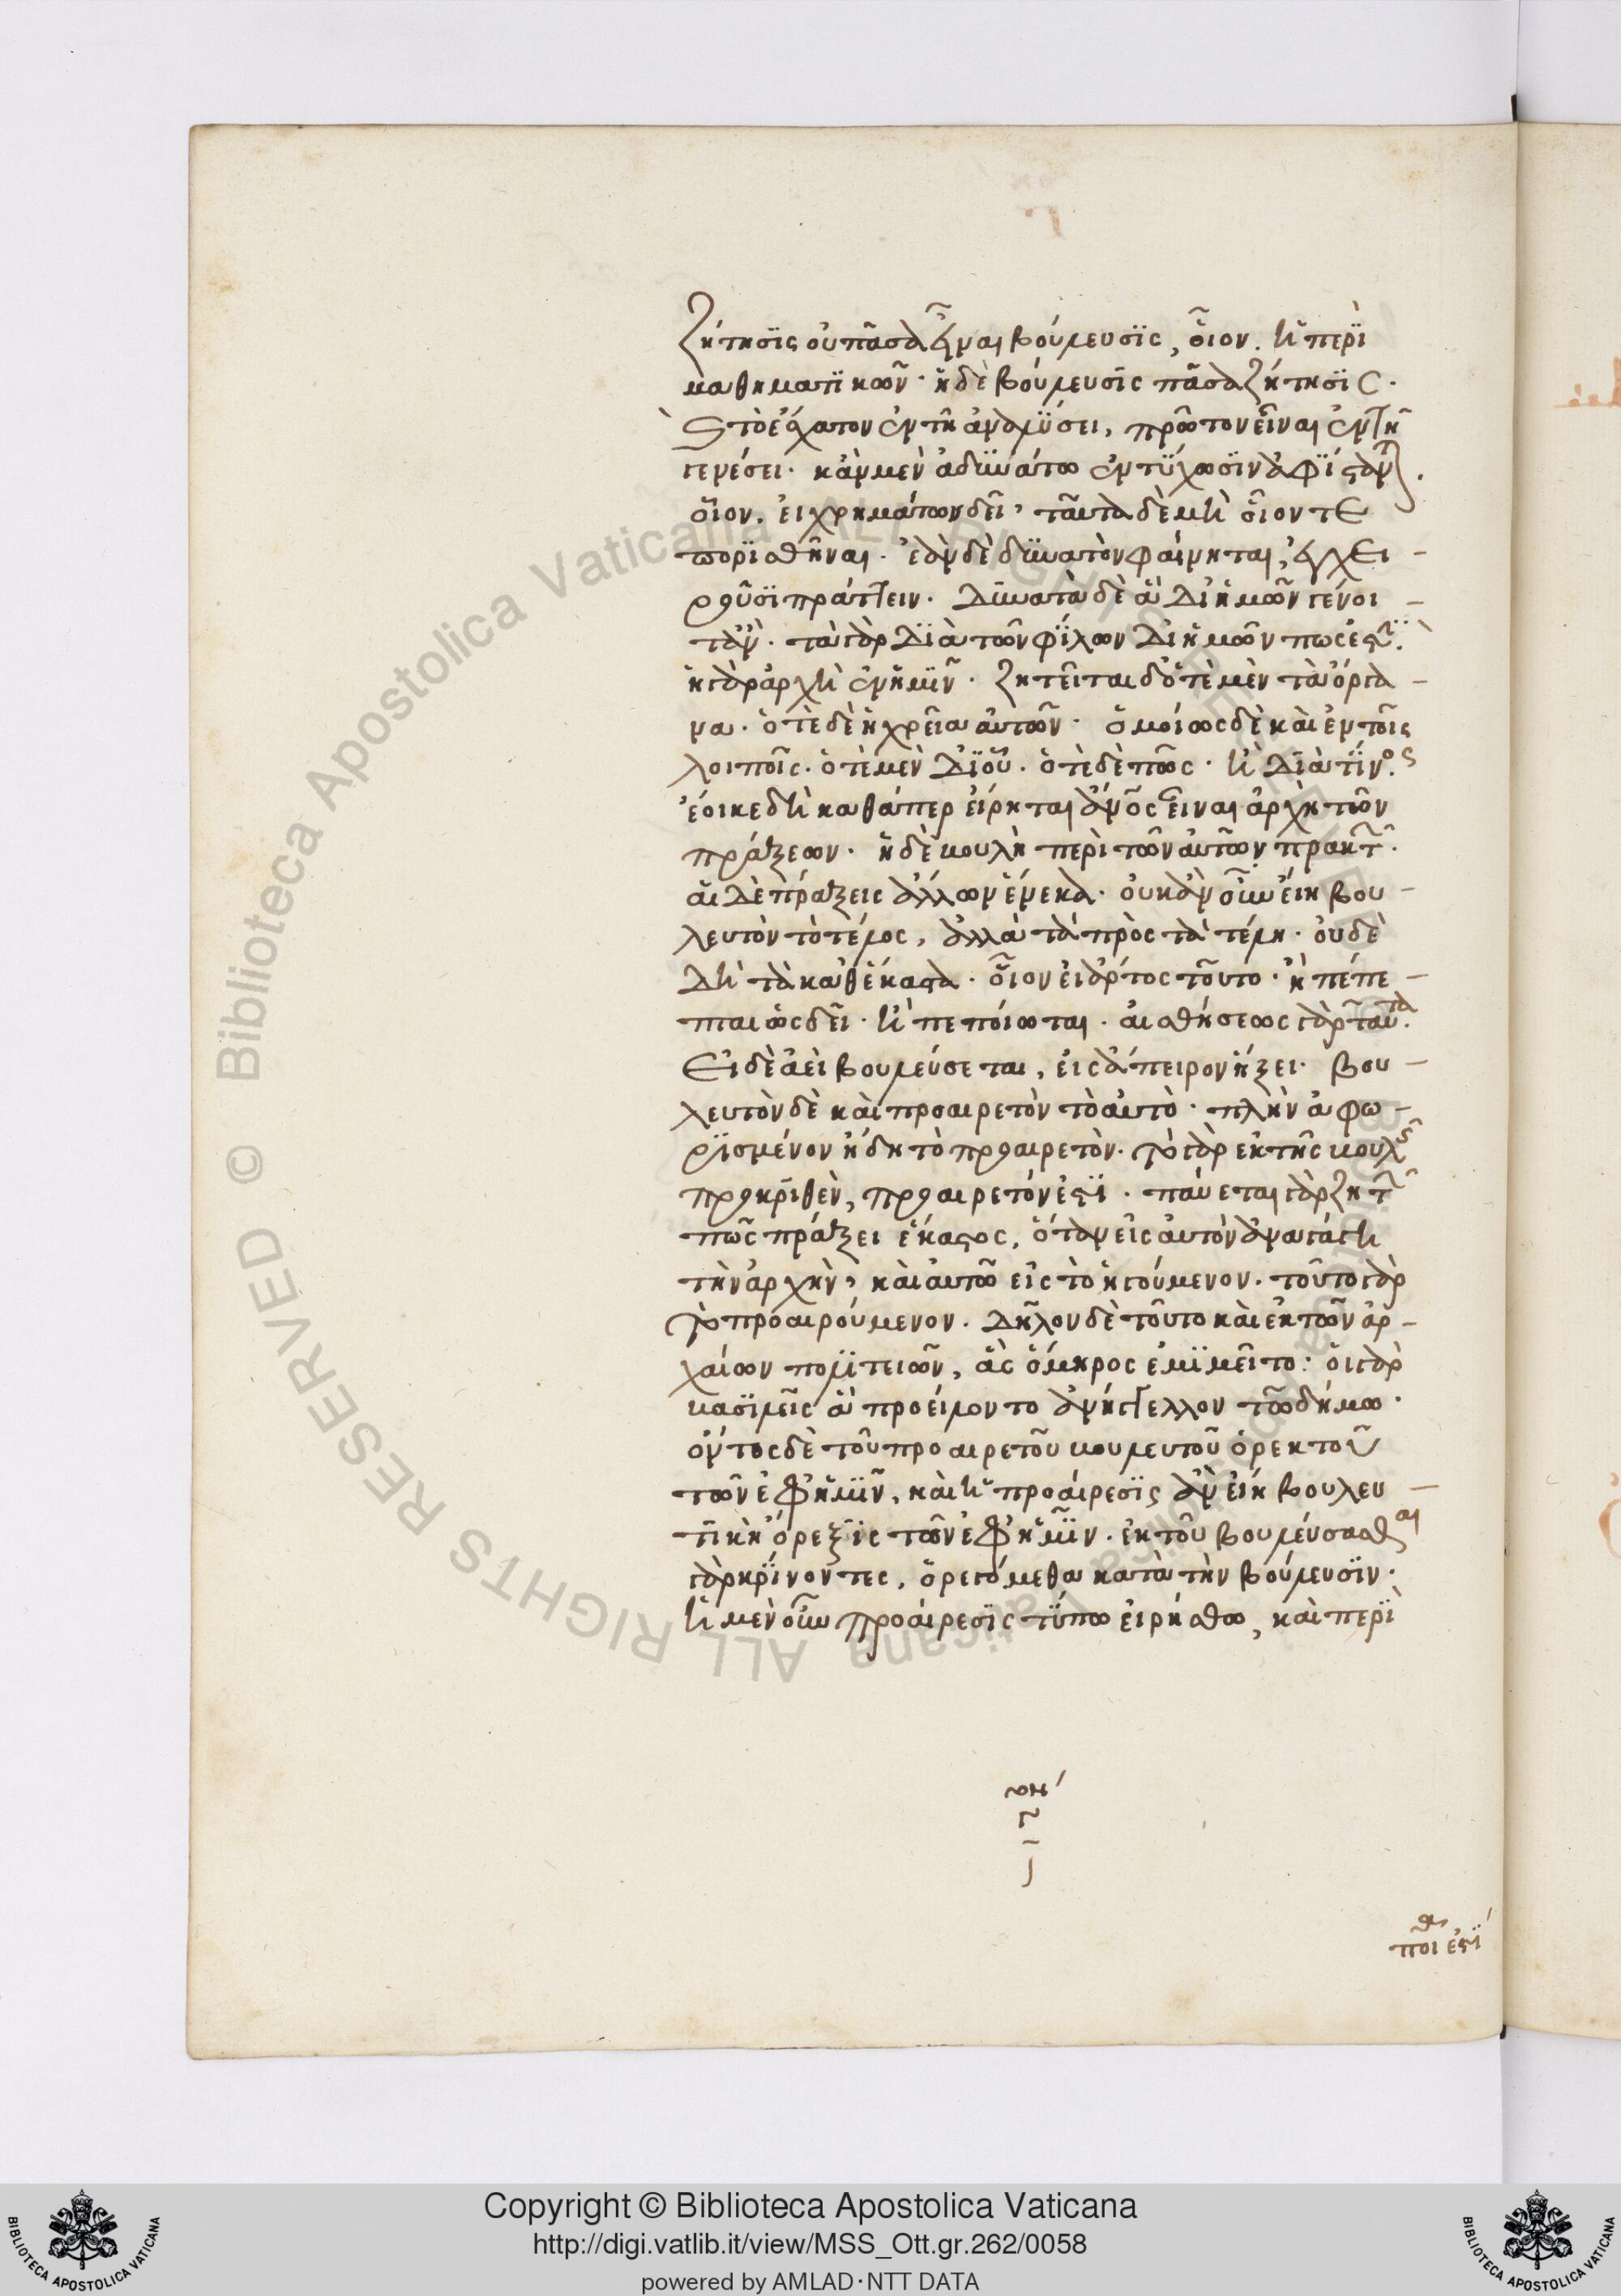 ζήτησις οὐ πᾶσα εἶναι βούλευσις, οἷον. ἡ περὶ
μαθηματικῶν· ἡ δὲ βούλευσις πᾶσα ζήτησις.
Καὶ τὸ ἔσχατον ἐν τῇ ἀναλύσει, πρῶτον εἶναι ἐν τῇ
γενέσει· κἂν μὲν ἀδυνάτω ἐντύχωσιν ἀφίσταν.
οἷον. εἰ χρημάτων δεῖ, ταῦτα δὲ μὴ οἷον τε
πορισθῆναι. ἐὰν δὲ δυνατὸν φαίνηται, ἐγχει-
ροῦσι πράττειν. Δυνατὰ δὲ ἃ δι ἡμῶν γένοι-
τ ἄν. τὰ γὰρ διὰ τῶν φίλων δι ἡμῶν πως ἐστί.
ἡ γὰρ ἀρχὴ ἐν ἡμῖν. ζητεῖται δ ὁτὲ μὲν τὰ ὄργα-
να. ὁτὲ δὲ ἡ χρεία αὐτῶν. ὁμοίως δὲ καὶ ἐν τοῖς
λοιποῖς. ὁτὲ μὲν δι οὗ. ὁτὲ δὲ πῶς. ἢ διὰ τίνος
ἔοικε δὴ καθάπερ εἴρηται ἄνος εἶναι ἀρχὴ τῶν
πράξεων. ἡ δὲ βουλὴ περὶ τῶν αὐτῶν πρακτ.
αἱ δὲ πράξεις ἄλλων ἕνεκα. οὐκ ἂν οὖν εἴη βου-
λευτὸν τὸ τέλος, ἀλλὰ τὰ πρὸς τὰ τέλη. οὐδὲ
δὴ τὰ καθέκαστα. οἷον εἰ ἄρτος τοῦτο. ἢ πέπε-
πται ὡς δεῖ. ἢ πεποίωται. αἰσθήσεως γὰρ ταῦτα.
Εἰ δὲ ἀεὶ βουλεύσεται, εἰς ἄπειρον ἥξει. βου-
λευτὸν δὲ καὶ προαιρετὸν τὸ αὐτὸ. πλὴν ἀφω-
ρισμένον ἤδη τὸ προαιρετὸν. τὸ γὰρ ἐκ τῆς βουλῆς
προκριθὲν, προαιρετόν ἐστι. παύεται γὰρ ζητ
πῶς πράξει ἕκαστος, ὅταν εἰς αὐτὸν ἀναγάγη
τὴν ἀρχὴν, καὶ αὐτοῦ εἰς τὸ ἡγούμενον. τοῦτο γὰρ
τὸ προαιρούμενον. Δῆλον δὲ τοῦτο καὶ ἐκ τῶν ἀρ-
χαίων πολιτειῶν, ἃς ὅμηρος ἐμιμεῖτο: οἱ γὰρ
βασιλεῖς ἃ προείλοντο ἀνήγγελλον τῶ δήμω.
ὄντος δὲ τοῦ προαιρετοῦ βουλευτοῦ ὀρεκτοῦ
τῶν ἐφ ἡμῖν, καὶ ἡ προαίρεσις ἂν εἴη βουλευ-
τικὴ ὄρεξις τῶν ἐφ ἡμῖν. ἐκ τοῦ βουλεύσασθαι
γὰρ κρίνοντες, ὀρεγόμεθα κατὰ τὴν βούλευσιν.
ἡ μὲν οὖν προαίρεσις τύπω εἰρήσθω, καὶ περὶ
ποι ἐστί
Copyright © Biblioteca Apostolica Vaticana
http://digi.vatlib.it/view/MSS_Ott.gr.262/0058
powered by AMLAD·NTT DATA
BIBLIOTECA APOSTOLICA VATICANA
BIBLIOTECA APOSTOLICA VATICANA